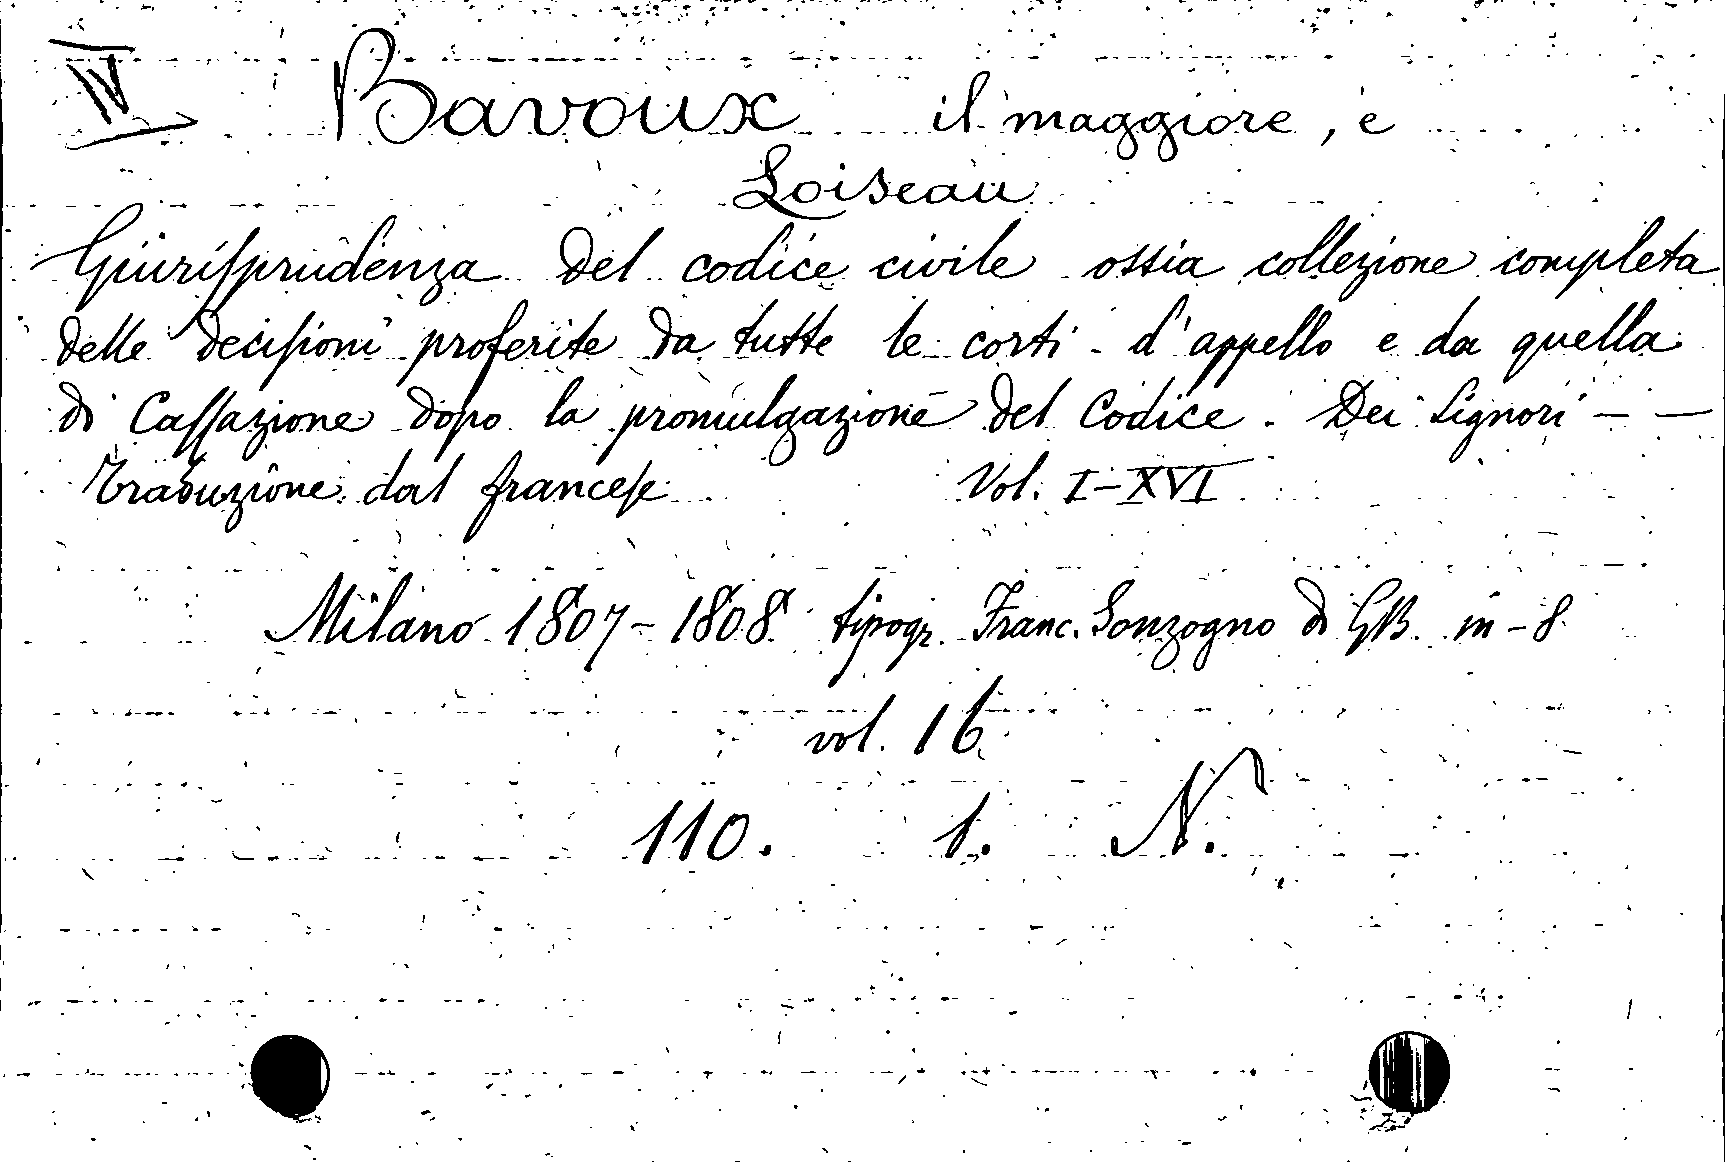 IV Bavoux il maggiore, e
Loiseau
Giurisprudenza del codice civile ossia collezione completa
delle decisioni proferite da tutte le corti d'appello e da quella
di Cassazione dopo la promulgazione del Codice. Dei Signori — —
Traduzione dal francese Vol. I–XVI
Milano 1807–1808 tipogr. Franc. Sonzogno di GB. in-8.
vol. 16
110. 1. N.